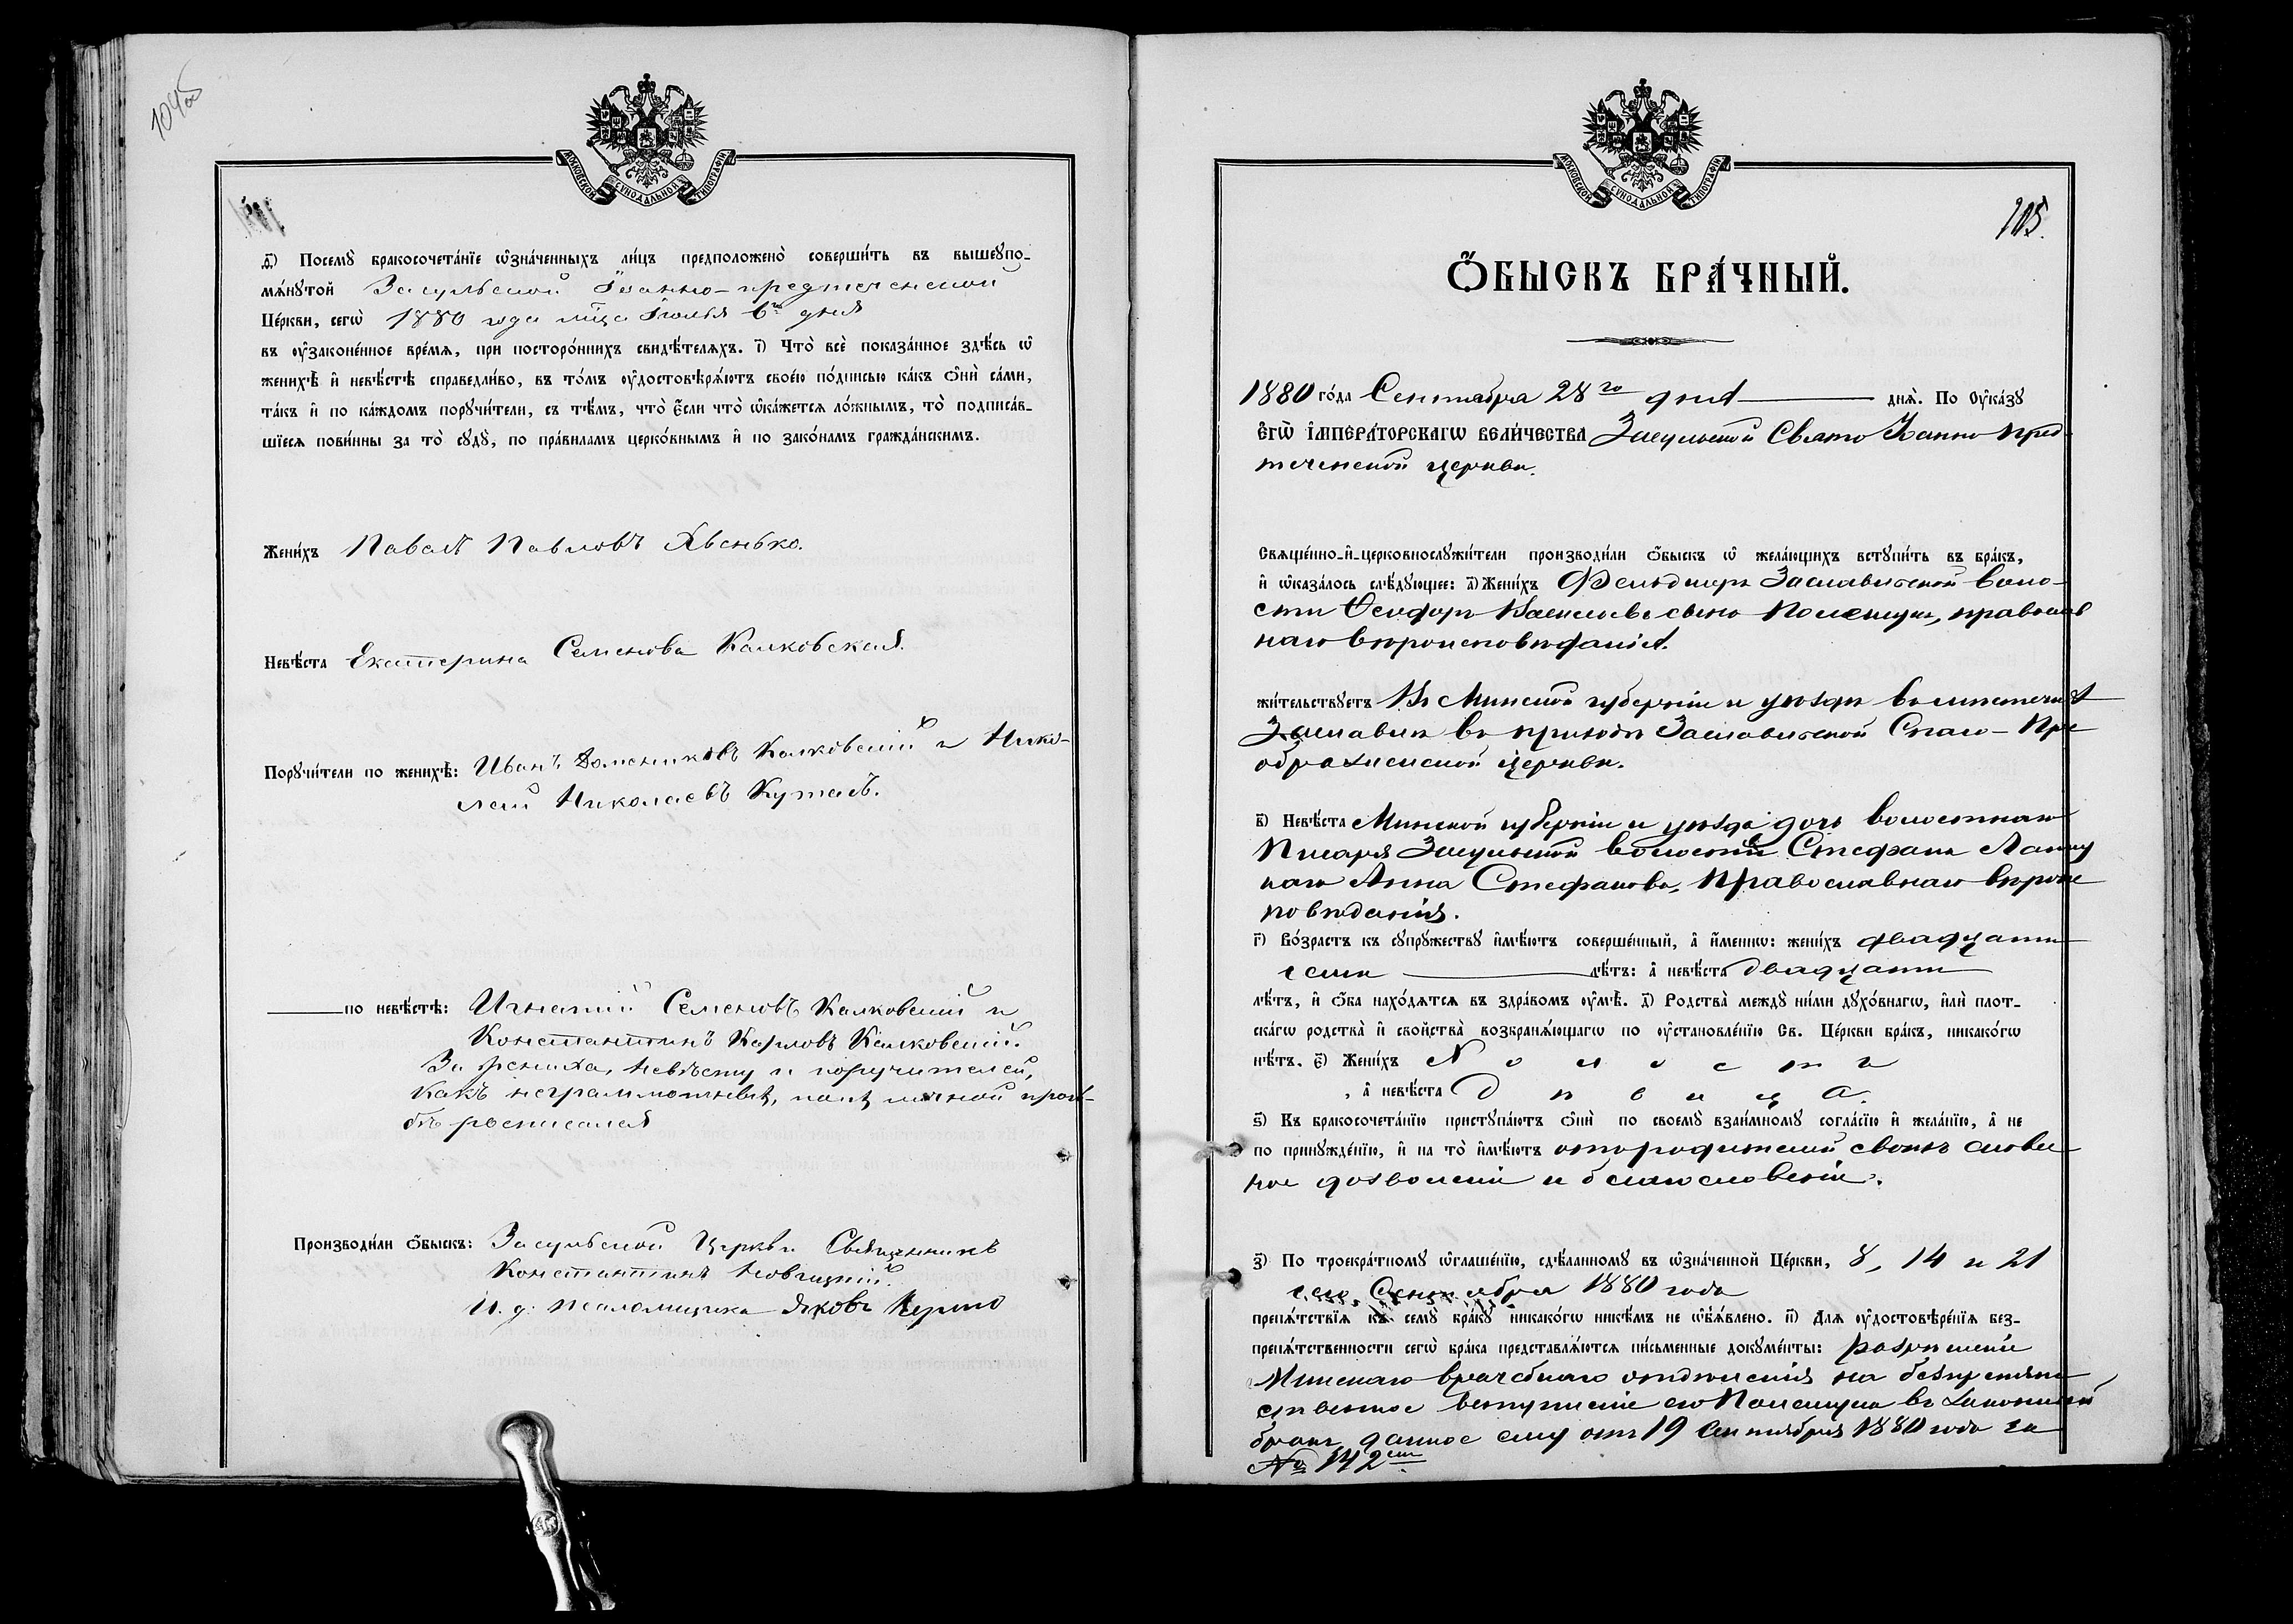 104об
МОСКОВСКОЙ СУНОДАЛЬНОЙ ТИПОГРАФІИ
д҃і) Посемꙋ̀ бракосочета́нїе ѡ҆зна́ченныхъ ли́цъ предположено̀ соверши́ть въ вышеꙋпо-
мѧ́нꙋтой Засульской Іоанно-предтеченской
Це́ркви, сегѡ̀ 1880 года мца Іюля 6го дня
въ ᲂу҆законе́нное вре́мѧ, при посторо́ннихъ свидѣ́телѧхъ. і҃) Что̀ всѐ показа́нное здѣ́сь ѡ҆
женихѣ̀ и҆ невѣ́стѣ справедли́во, въ то́мъ ᲂу҆достовѣрѧ́ютъ свое́ю по́дписью ка́къ ѻ҆нѝ са́ми,
та́къ и҆ по ка́ждомъ порꙋчи́тели, съ тѣ́мъ, что̀ є҆́сли что̀ ѡ҆ка́жетсѧ ло́жнымъ, то̀ подписа́в-
шїесѧ пови́нны за то̀ сꙋдꙋ̀, по пра́виламъ церко́внымъ и҆ по зако́намъ гражда́нскимъ.
Жени́хъ Павелъ Павловъ Явенько.
Невѣ́ста Екатерина Семенова Калковская.
Порꙋчи́тели по женихѣ̀: Иванъ Домениковъ Калковскій и Нико-
лай Николаевъ Кутасъ.
по невѣ́стѣ: Игнатій Семеновъ Калковскій и
Константинъ Карловъ Калковскій.
За жениха, невѣсту и поручителей,
какъ неграмотныхъ, по ихъ личной прось-
бѣ росписался
Производи́ли ѻ҆́быскъ: Засульской Церкви Священникъ
Константинъ Новицкій.
И. д. псаломщика Яковъ
МОСКОВСКОЙ СУНОДАЛЬНОЙ ТИПОГРАФІИ
105.
Ѻ҆́БЫСКЪ БРА́ЧНЫЙ.
1880 го́да Сентября 28го дня днѧ̀. По Оу҆ка́зꙋ
Є҆ГѠ̀ І҆МПЕРА́ТОРСКАГѠ ВЕЛИ́ЧЕСТВА Засульской Свято Іоанно Пред-
теченской церкви.
Свѧще́нно-и҆-церковнослꙋжи́тели производи́ли ѻ҆́быскъ ѡ҆ жела́ющихъ вступи́ть въ бра́къ,
и҆ ѡ҆каза́лось слѣ́дꙋющее: а҃) Жени́хъ Фельдшеръ Заславльской Воло-
сти Ѳеодоръ Васильевъ сынъ Полещукъ, православ
наго вѣроисповѣданія.
жи́тельствꙋетъ Въ Минской губерніи и уѣздѣ въ мѣстечкѣ
Заславлѣ въ приходѣ Заславльской Спасо-Пре
ображенской церкви.
в҃) Невѣ́ста Минской губерніи и уѣзда дочь волостнаго
Писаря Засульской волости Стефана
Анна Стефанова, Православнаго вѣроис
повѣданія.
г҃) Во́зрастъ къ сꙋпрꙋ́жествꙋ и҆мѣ́ютъ соверше́нный, а҆ и҆́меннѡ: жени́хъ двадцати
семи лѣ́тъ: а҆ невѣ́ста двадцати
лѣ́тъ, и҆ ѻ҆́ба нахо́дѧтсѧ въ здра́вомъ ᲂу҆мѣ̀. д҃) Родства̀ междꙋ̀ ни́ми дꙋхо́внагѡ, и҆лѝ плот-
ска́гѡ родства̀ и҆ свойства̀ возбранѧ́ющагѡ по ᲂу҆становле́нїю Св. Це́ркви бра́къ, никако́гѡ
нѣ́тъ. є҃) Жени́хъ Холостъ
, а҆ невѣ́ста Дѣвица.
ѕ҃) Къ бракосочета́нїю пристꙋпа́ютъ ѻ҆нѝ по своемꙋ̀ взаи́мномꙋ согла́сїю и҆ жела́нїю, а҆ не
по принꙋжде́нїю, и҆ на то̀ и҆мѣ́ютъ отъ родителей своихъ словес
ное дозволеніе и благословеніе.
з҃) По троекра́тномꙋ ѡ҆глаше́нїю, сдѣ́ланномꙋ въ ѡ҆зна́ченной Це́ркви, 8, 14 и 21
сего Сентября 1880 года
препѧ́тствїѧ къ семꙋ̀ бра́кꙋ никако́гѡ никѣ́мъ не ѡ҆б̾ѧ́влено. и҃) Длѧ ᲂу҆достовѣре́нїѧ без-
препѧ́тственности сегѡ̀ бра́ка представлѧ́ютсѧ пи́сьменные докꙋме́нты: разрѣшеніе
Минскаго врачебнаго отдѣленія на безпрепят
ственное вступленіе его Полещука въ законный
бракъ, данное ему отъ 19 Сентября 1880 года за
№ 142мъ